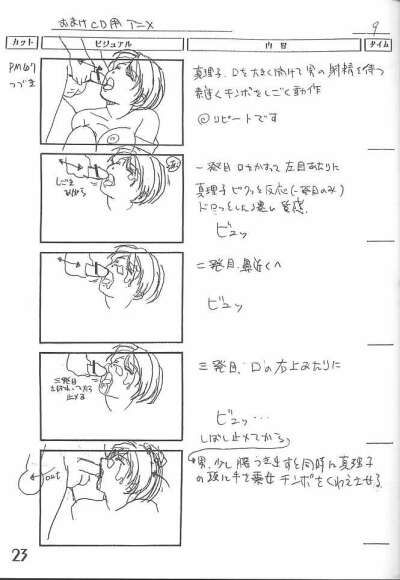 おまけCD用アニメ
9
カット ビジュアル 内容 タイム
PM407
つづき
真理子、口を大きく開けて男の射精を待つ
素早くチンポをしごく動作
@リピートです
しごき
ながら
一発目 口をかすって左目あたりに
真理子ピクッと反応(一発目のみ)
ドロッとした濃い質感。
ビュッ
二発目、鼻近くへ
ビュッ
三発目
止める
三発目、口の右上あたりに
ビュッ…
しばし止メてから、
out
男、少し腰うき出すと同時に真理子
の頭に手を乗せ チンポをくわえさせる。
23